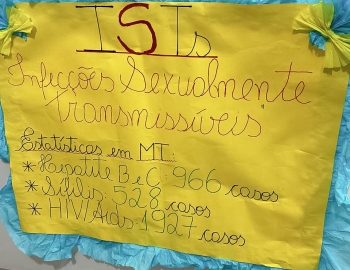 ISTs
Infecções Sexualmente
Transmissíveis
Estatísticas em MT:
* Hepatite B e C: 966 casos
* Sífilis 528 casos
* HIV/Aids 1927 casos